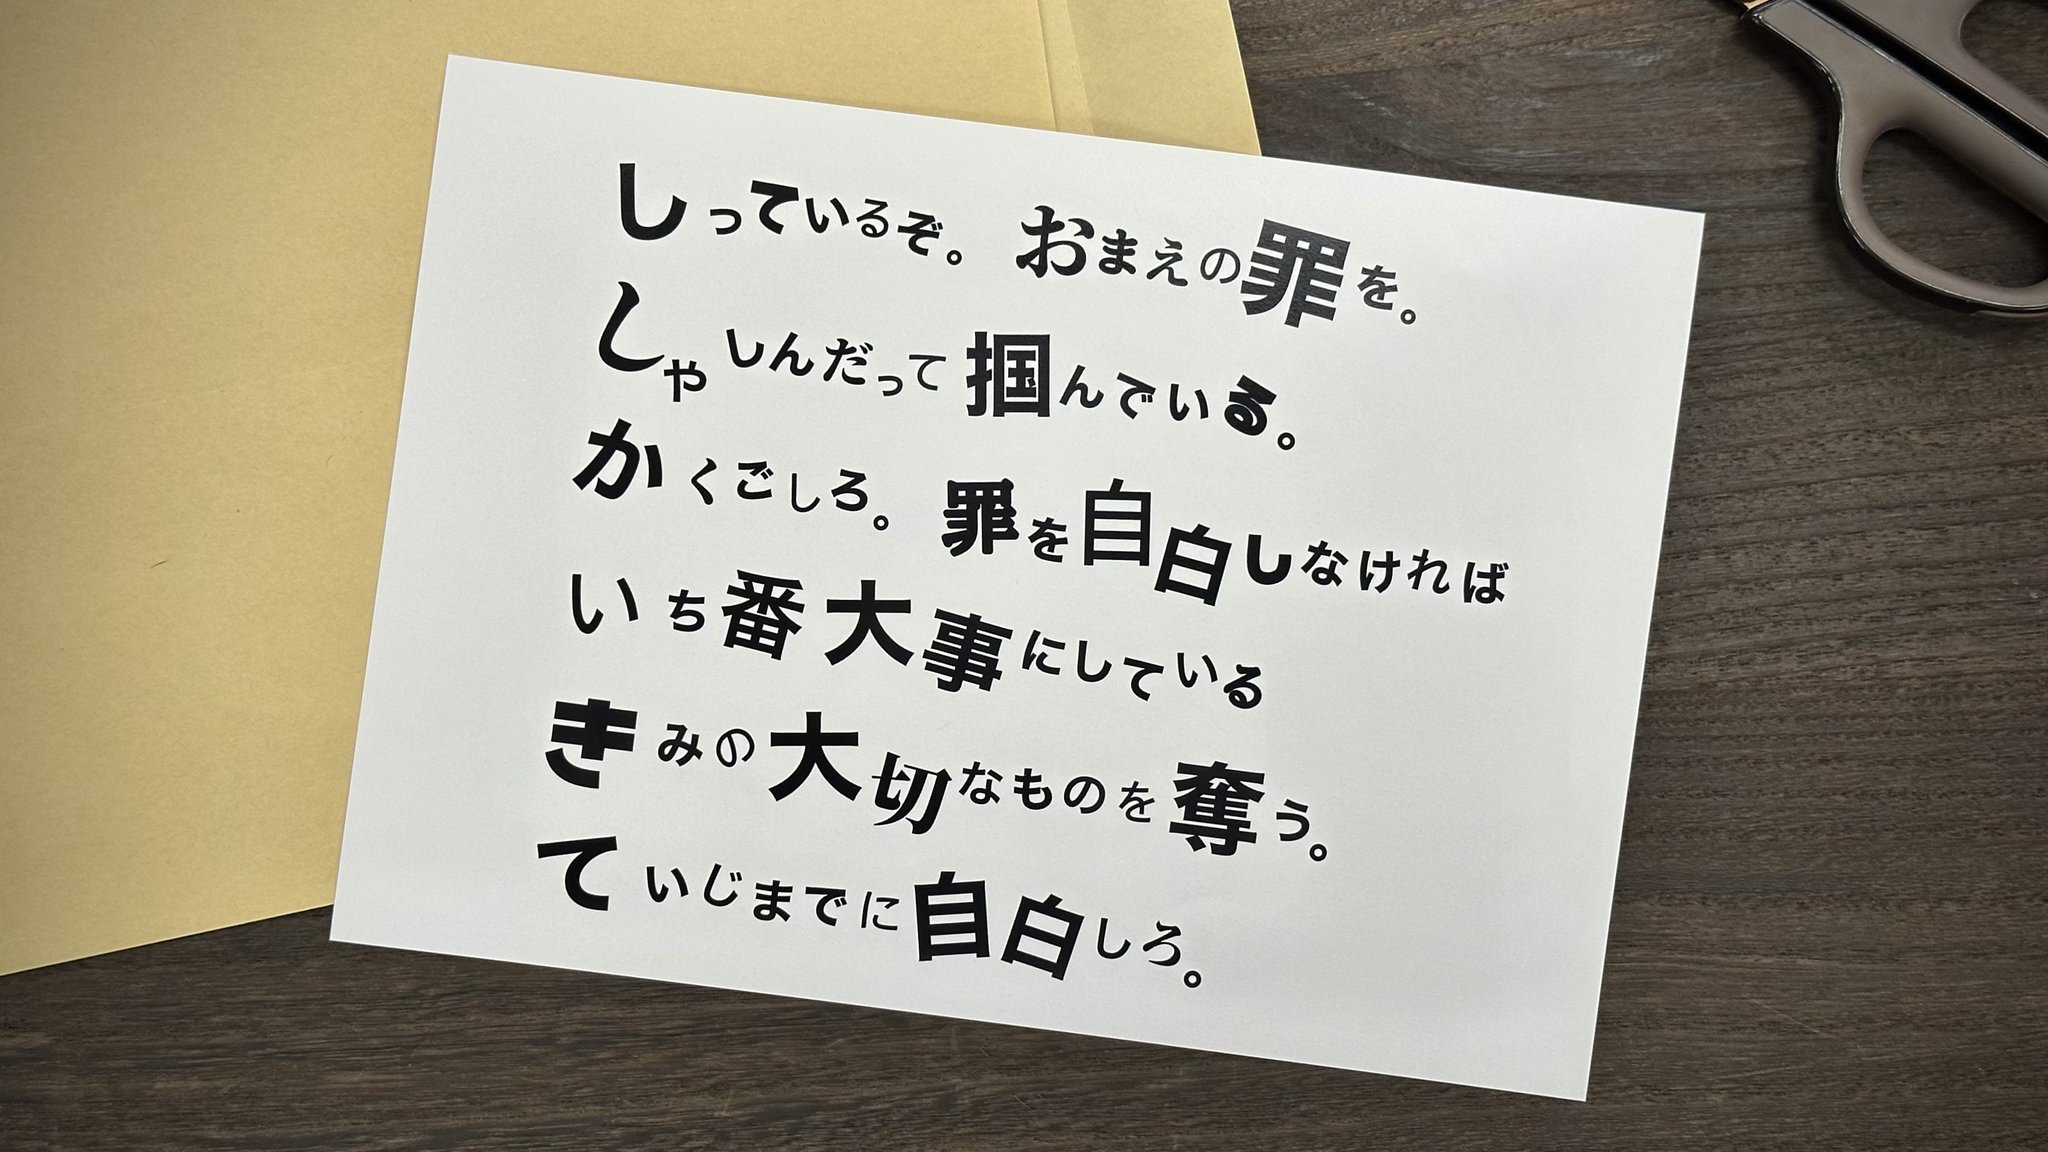 しっているぞ。おまえの罪を。
しゃしんだって掴んでいる。
かくごしろ。罪を自白しなければ
いち番大事にしている
きみの大切なものを奪う。
ていじまでに自白しろ。